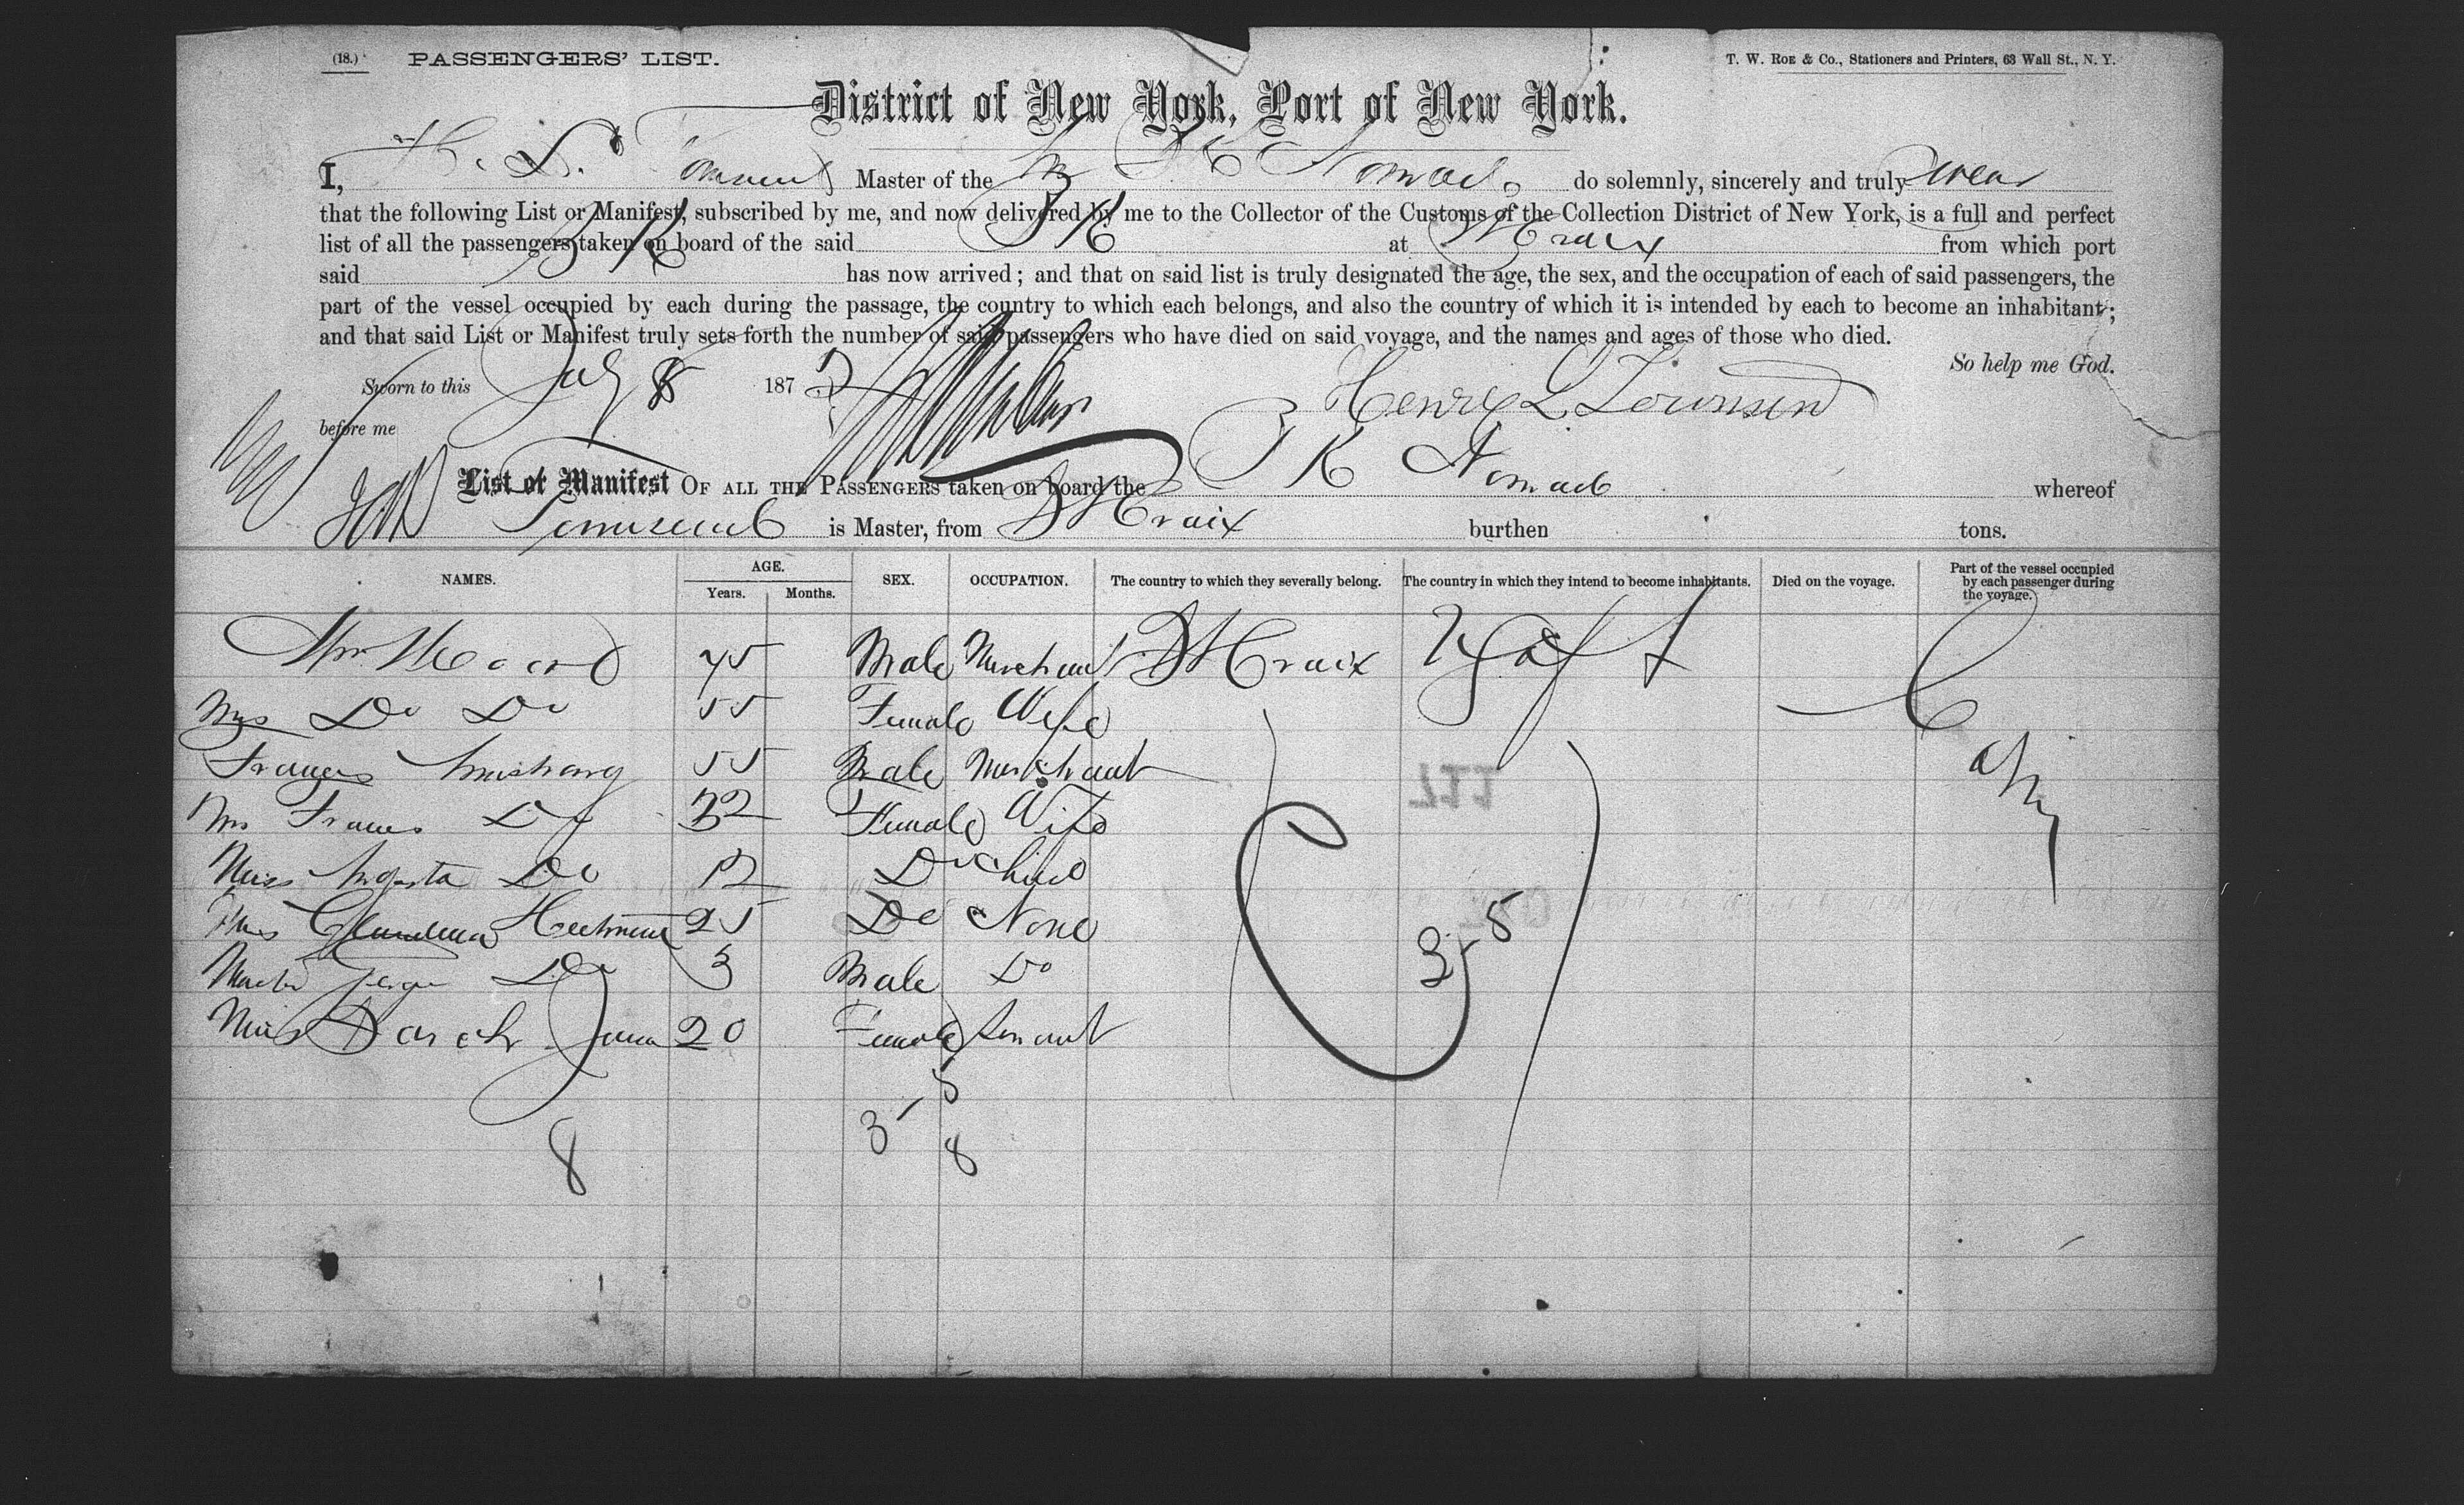 (18.) PASSENGERS' LIST. T. W. ROE & Co., Stationers and Printers, 63 Wall St., N. Y.
District of New York, Port of New York.
I, H. L. Master of the Nomad do solemnly, sincerely and truly swear
that the following List or Manifest, subscribed by me, and now delivered by me to the Collector of the Customs of the Collection District of New York, is a full and perfect
list of all the passengers taken on board of the said BK at St Croix from which port
said BK has now arrived; and that on said list is truly designated the age, the sex, and the occupation of each of said passengers, the
part of the vessel occupied by each during the passage, the country to which each belongs, and also the country of which it is intended by each to become an inhabitant;
and that said List or Manifest truly sets forth the number of said passengers who have died on said voyage, and the names and ages of those who died.
So help me God.
Sworn to this July 8 187
before me Henry L Townsend
List or Manifest OF ALL THE PASSENGERS taken on board the BK Nomad whereof
Townsend is Master, from St Croix burthen tons.
NAMES. AGE. Years. Months. SEX. OCCUPATION. The country to which they severally belong. The country in which they intend to become inhabitants. Died on the voyage. Part of the vessel occupied by each passenger during the voyage.
45 Male Merchant St Croix
Mrs Do Do 55 Female Wife
55 Male Merchant
Mrs Do 32 Female Wife
Miss Do 12 Do Child
25 Do None
Master Do 3 Male Do
Miss 20 Female Servant
3-5
5
3-
8 8